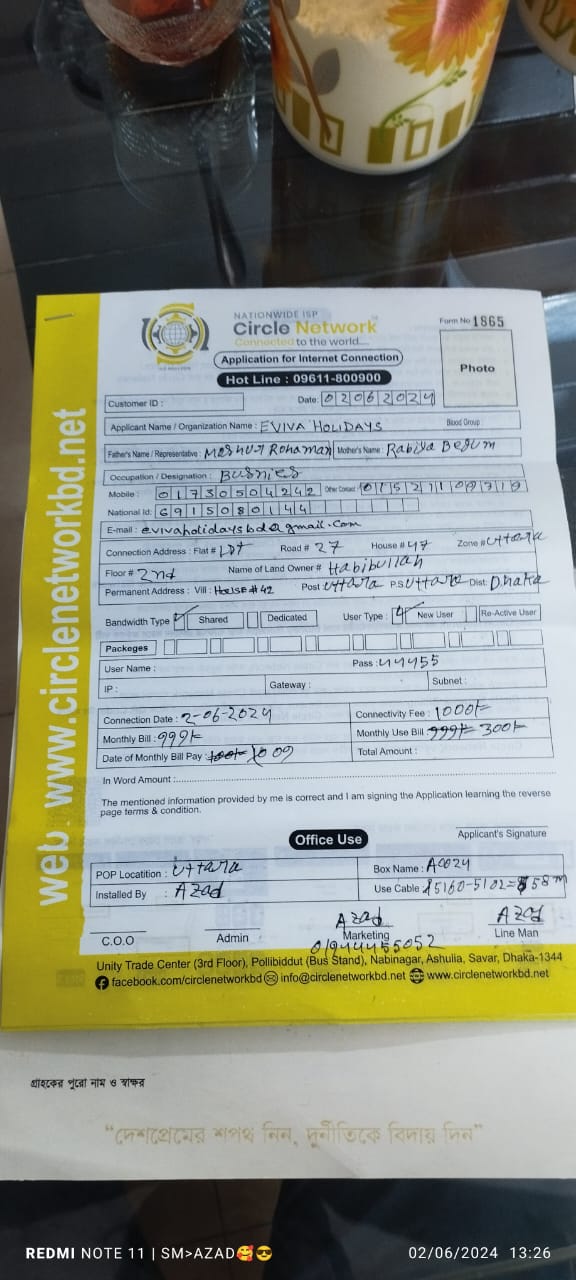 NATIONWIDE ISP
Circle Network
Connected to the world....
Form No 1865
Application for Internet Connection
Hot Line : 09611-800900
Photo
Customer ID :
Date: 02062024
Applicant Name / Organization Name : EVIVA HOLIDAYS Blood Group :
Father's Name / Representative : Rohaman Mother's Name : Rabiya Begum
Occupation / Designation : Busnies
Mobile : 01730504242 Other Contact
National Id: 6915080144
E-mail : evivaholidaysbd@gmail.com
Connection Address : Flat # Road # 27 House # 47 Zone # Uttara
Floor # 2nd Name of Land Owner # Habibullah
Permanent Address : Vill : House # 42 Post Uttara P.S Uttara Dist: Dhaka
Bandwidth Type Shared Dedicated User Type : New User Re-Active User
Packeges
User Name : Pass : 44455
IP : Gateway : Subnet :
Connection Date : 2-06-2024 Connectivity Fee : 1000/-
Monthly Bill : 999/- Monthly Use Bill 999/- 300/-
Date of Monthly Bill Pay : Total Amount :
In Word Amount :
The mentioned information provided by me is correct and I am signing the Application learning the reverse
page terms & condition.
Applicant's Signature
Office Use
POP Locatition : Uttara Box Name :
Installed By : Azad Use Cable 5160-5102= 58m
Azad Azad
C.O.O Admin Marketing Line Man
Unity Trade Center (3rd Floor), Pollibiddut (Bus Stand), Nabinagar, Ashulia, Savar, Dhaka-1344
facebook.com/circlenetworkbd info@circlenetworkbd.net www.circlenetworkbd.net
web : www.circlenetworkbd.net
গ্রাহকের পুরো নাম ও স্বাক্ষর
"দেশপ্রেমের শপথ নিন, দুর্নীতিকে বিদায় দিন"
REDMI NOTE 11 | SM>AZAD🥰😎
02/06/2024 13:26